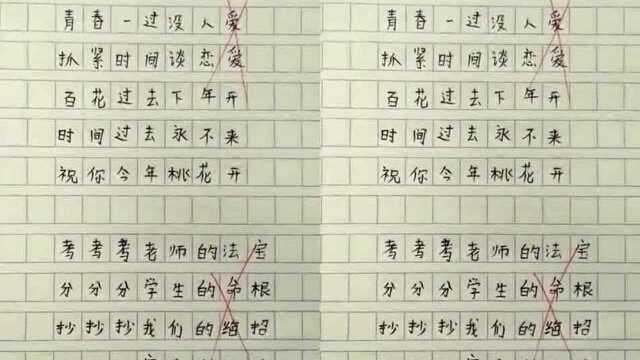 青春一过没人爱
抓紧时间谈恋爱
百花过去下年开
时间过去永不来
祝你今年桃花开
考考考老师的法宝
分分分学生的命根
抄抄抄我们的绝招
青春一过没人爱
抓紧时间谈恋爱
百花过去下年开
时间过去永不来
祝你今年桃花开
考考考老师的法宝
分分分学生的命根
抄抄抄我们的绝招